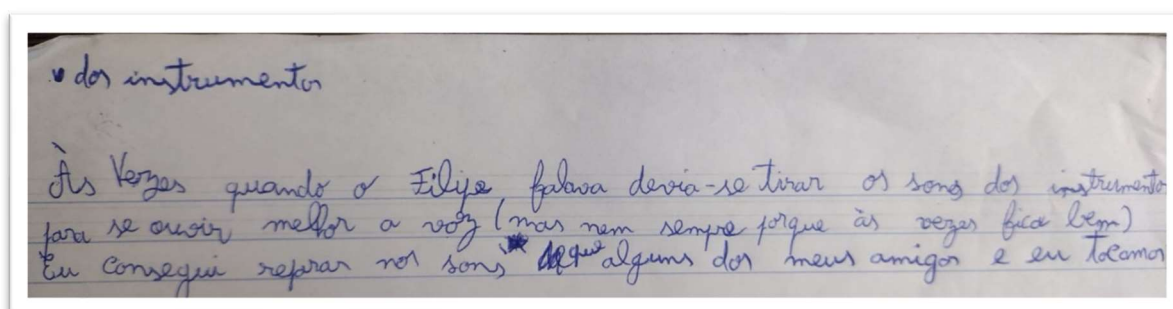 dos instrumentos
Às Vezes quando o Filipe falava devia-se tirar os sons dos instrumento
para se ouvir melhor a voz (mas nem sempre porque às vezes fica bem)
Eu Consegui reparar nos sons que alguns dos meus amigos e eu tocamos